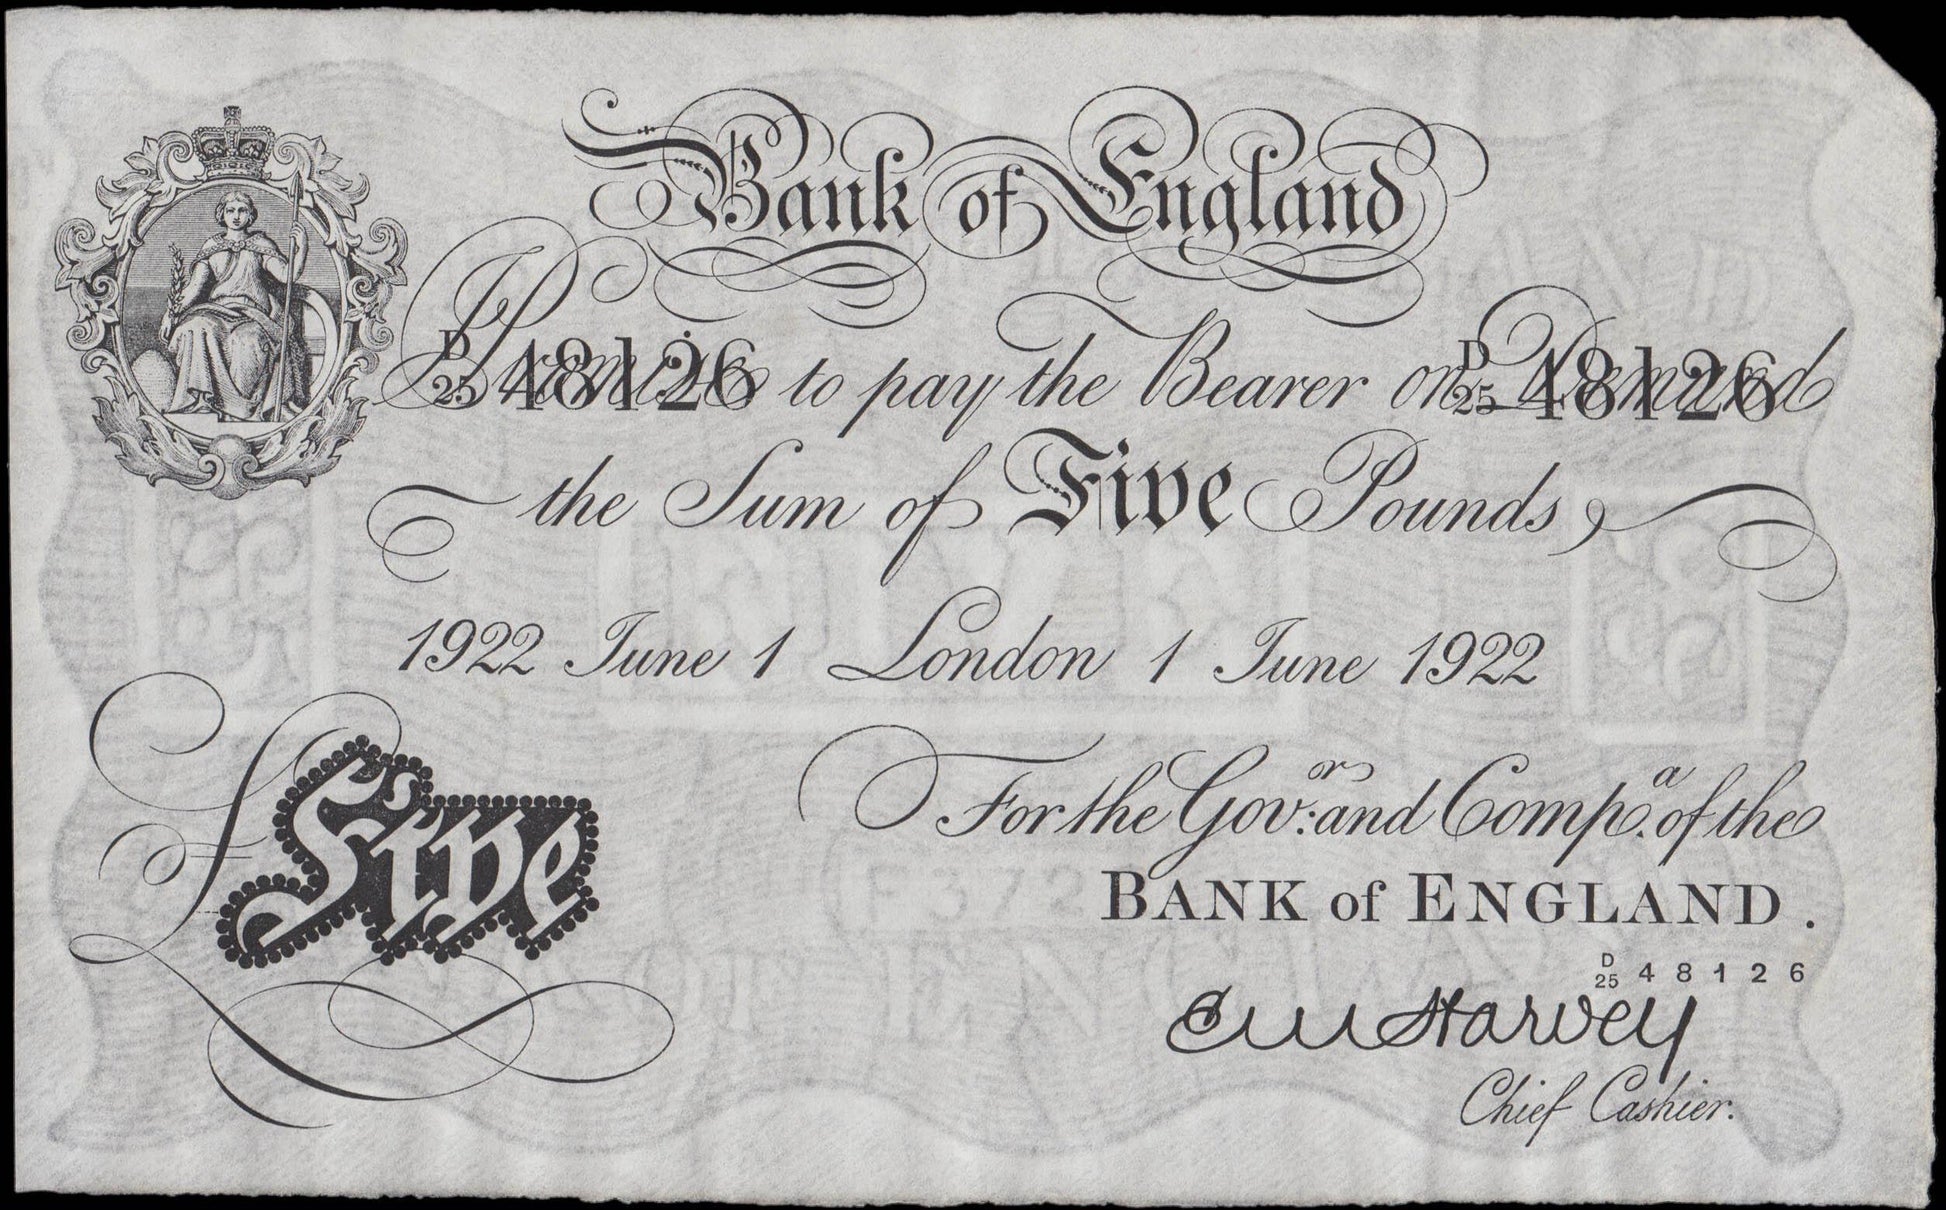 Bank of England
I Promise to pay the Bearer on Demand
D/25 48126 D/25 48126
the Sum of Five Pounds,
1922 June 1 London 1 June 1922
For the Gov:r and Comp.a of the
£ Five
BANK of ENGLAND.
D/25 48126
E M Harvey
Chief Cashier.